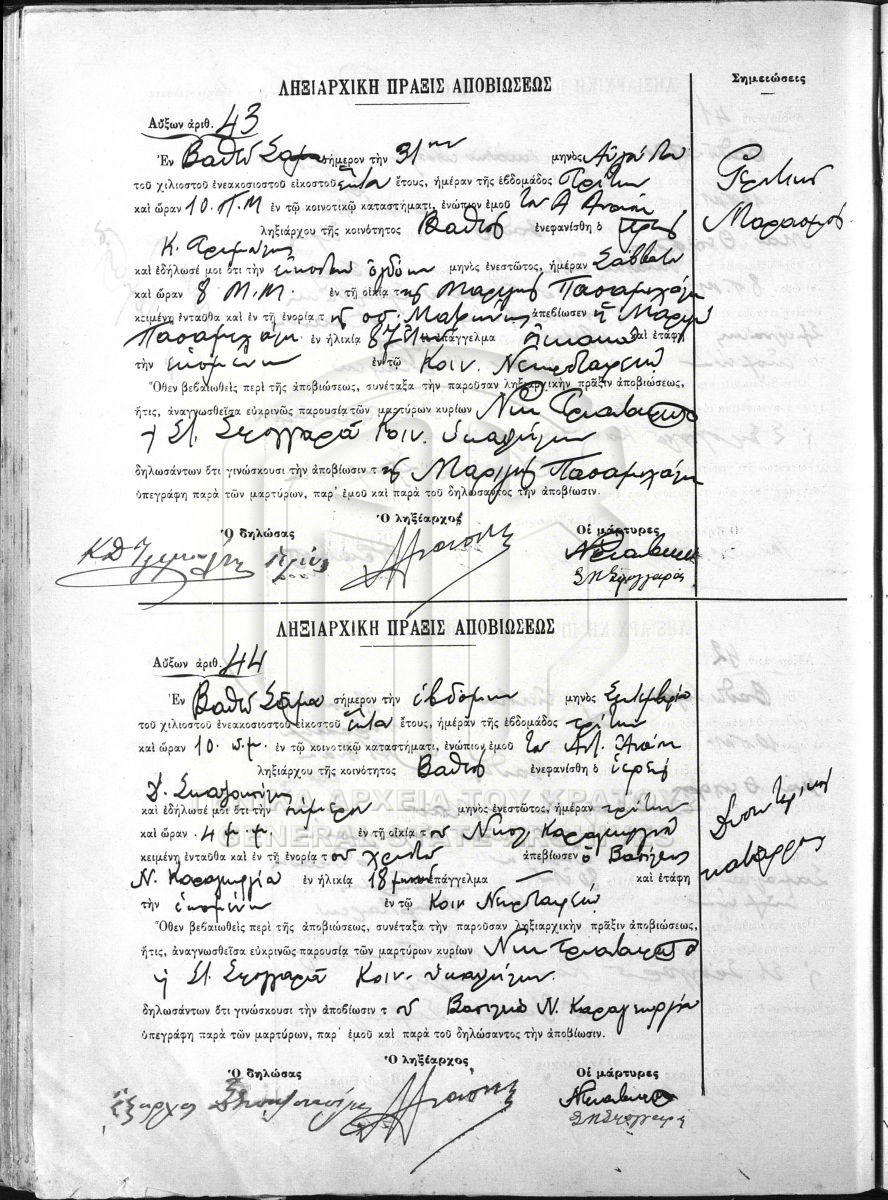 ΛΗΞΙΑΡΧΙΚΗ ΠΡΑΞΙΣ ΑΠΟΒΙΩΣΕΩΣ
Σημειώσεις
Αὔξων ἀριθ. 43
Ἐν Βαθεῖ Σάμου σήμερον τὴν 31ην μηνὸς Αὐγούστου
τοῦ χιλιοστοῦ ἐνεακοσιοστοῦ εἰκοστοῦ ἔτους, ἡμέραν τῆς ἑβδομάδος Τρίτην
καὶ ὥραν 10 Π.Μ ἐν τῷ κοινοτικῷ καταστήματι, ἐνώπιον ἐμοῦ τοῦ
ληξιάρχου τῆς κοινότητος Βαθέος ἐνεφανίσθη ὁ
Μαρασμός
καὶ ἐδήλωσέ μοι ὅτι τὴν εἰκοστὴν ὀγδόην μηνὸς ἐνεστῶτος, ἡμέραν Σάββατον
καὶ ὥραν 8 Μ.Μ. ἐν τῇ οἰκίᾳ τῆς
κειμένῃ ἐνταῦθα καὶ ἐν τῇ ἐνορίᾳ τ ἀπεβίωσεν ἡ
ἐν ἡλικίᾳ 87 ἐπάγγελμα καὶ ἐτάφη
τὴν ἑπομένην ἐν τῷ Κοιν. Νεκροταφείῳ
Ὅθεν βεβαιωθεὶς περὶ τῆς ἀποβιώσεως, συνέταξα τὴν παροῦσαν ληξιαρχικὴν πρᾶξιν ἀποβιώσεως,
ἥτις, ἀναγνωσθεῖσα εὐκρινῶς παρουσίᾳ τῶν μαρτύρων κυρίων Νικ
Στ. Σφογγαρᾶ Κοιν. ὑπαλλήλων
δηλωσάντων ὅτι γινώσκουσι τὴν ἀποβίωσιν τῆς
ὑπεγράφη παρὰ τῶν μαρτύρων, παρ' ἐμοῦ καὶ παρὰ τοῦ δηλώσαντος τὴν ἀποβίωσιν.
Ὁ δηλώσας Ὁ ληξίαρχος Οἱ μάρτυρες
ΛΗΞΙΑΡΧΙΚΗ ΠΡΑΞΙΣ ΑΠΟΒΙΩΣΕΩΣ
Αὔξων ἀριθ. 44
Ἐν Βαθεῖ Σάμου σήμερον τὴν ἑβδόμην μηνὸς Σεπτεμβρίου
τοῦ χιλιοστοῦ ἐνεακοσιοστοῦ εἰκοστοῦ ἔτους, ἡμέραν τῆς ἑβδομάδος τρίτην
καὶ ὥραν 10 π.μ. ἐν τῷ κοινοτικῷ καταστήματι, ἐνώπιον ἐμοῦ τοῦ
ληξιάρχου τῆς κοινότητος Βαθέος ἐνεφανίσθη ὁ ἱερεὺς
ΓΕΝΙΚΑ ΑΡΧΕΙΑ ΤΟΥ ΚΡΑΤΟΥΣ
καὶ ἐδήλωσέ μοι ὅτι τὴν σήμερον μηνὸς ἐνεστῶτος, ἡμέραν τρίτην
GENERAL STATE ARCHIVES
καὶ ὥραν 4 π.μ. ἐν τῇ οἰκίᾳ τοῦ Νικολ. Καραγεωργίου
κειμένῃ ἐνταῦθα καὶ ἐν τῇ ἐνορίᾳ τοῦ Χριστοῦ ἀπεβίωσεν ὁ Βασίλειος
Ν. Καραγεωργίου ἐν ἡλικίᾳ 18 μηνῶν ἐπάγγελμα — καὶ ἐτάφη
τὴν ἑπομένην ἐν τῷ Κοιν Νεκροταφείῳ
Ὅθεν βεβαιωθεὶς περὶ τῆς ἀποβιώσεως, συνέταξα τὴν παροῦσαν ληξιαρχικὴν πρᾶξιν ἀποβιώσεως,
ἥτις, ἀναγνωσθεῖσα εὐκρινῶς παρουσίᾳ τῶν μαρτύρων κυρίων Νικ
Στ. Σφογγαρᾶ Κοιν. ὑπαλλήλων
δηλωσάντων ὅτι γινώσκουσι τὴν ἀποβίωσιν τοῦ Βασιλείου Ν. Καραγεωργίου
ὑπεγράφη παρὰ τῶν μαρτύρων, παρ' ἐμοῦ καὶ παρὰ τοῦ δηλώσαντος τὴν ἀποβίωσιν.
Ὁ δηλώσας Ὁ ληξίαρχος Οἱ μάρτυρες